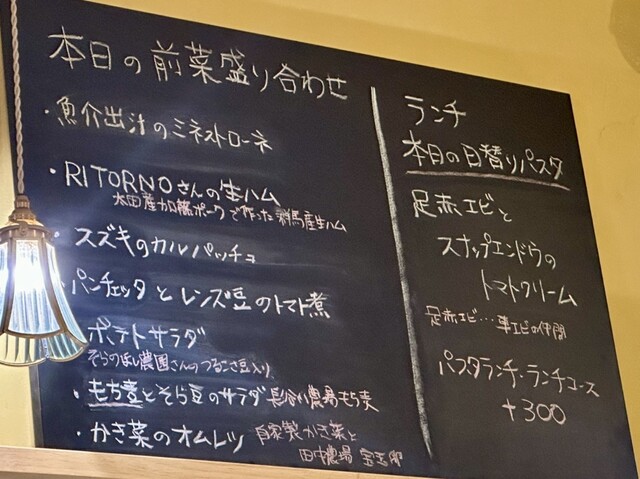 本日の前菜盛り合わせ
・魚介出汁のミネストローネ
・RITORNOさんの生ハム
太田産加藤ポークで作った群馬産生ハム
・スズキのカルパッチョ
・パンチェッタとレンズ豆のトマト煮
ポテトサラダ
そらのほし農園さんのつるこさ豆入り
・もち麦とそら豆のサラダ 長谷川農場もち麦
・かき菜のオムレツ 自家製かき菜と
田中農場 宝玉卵
ランチ
本日の日替りパスタ
足赤エビと
スナップエンドウの
トマトクリーム
足赤エビ…車エビの仲間
パスタランチ・ランチコース
+300